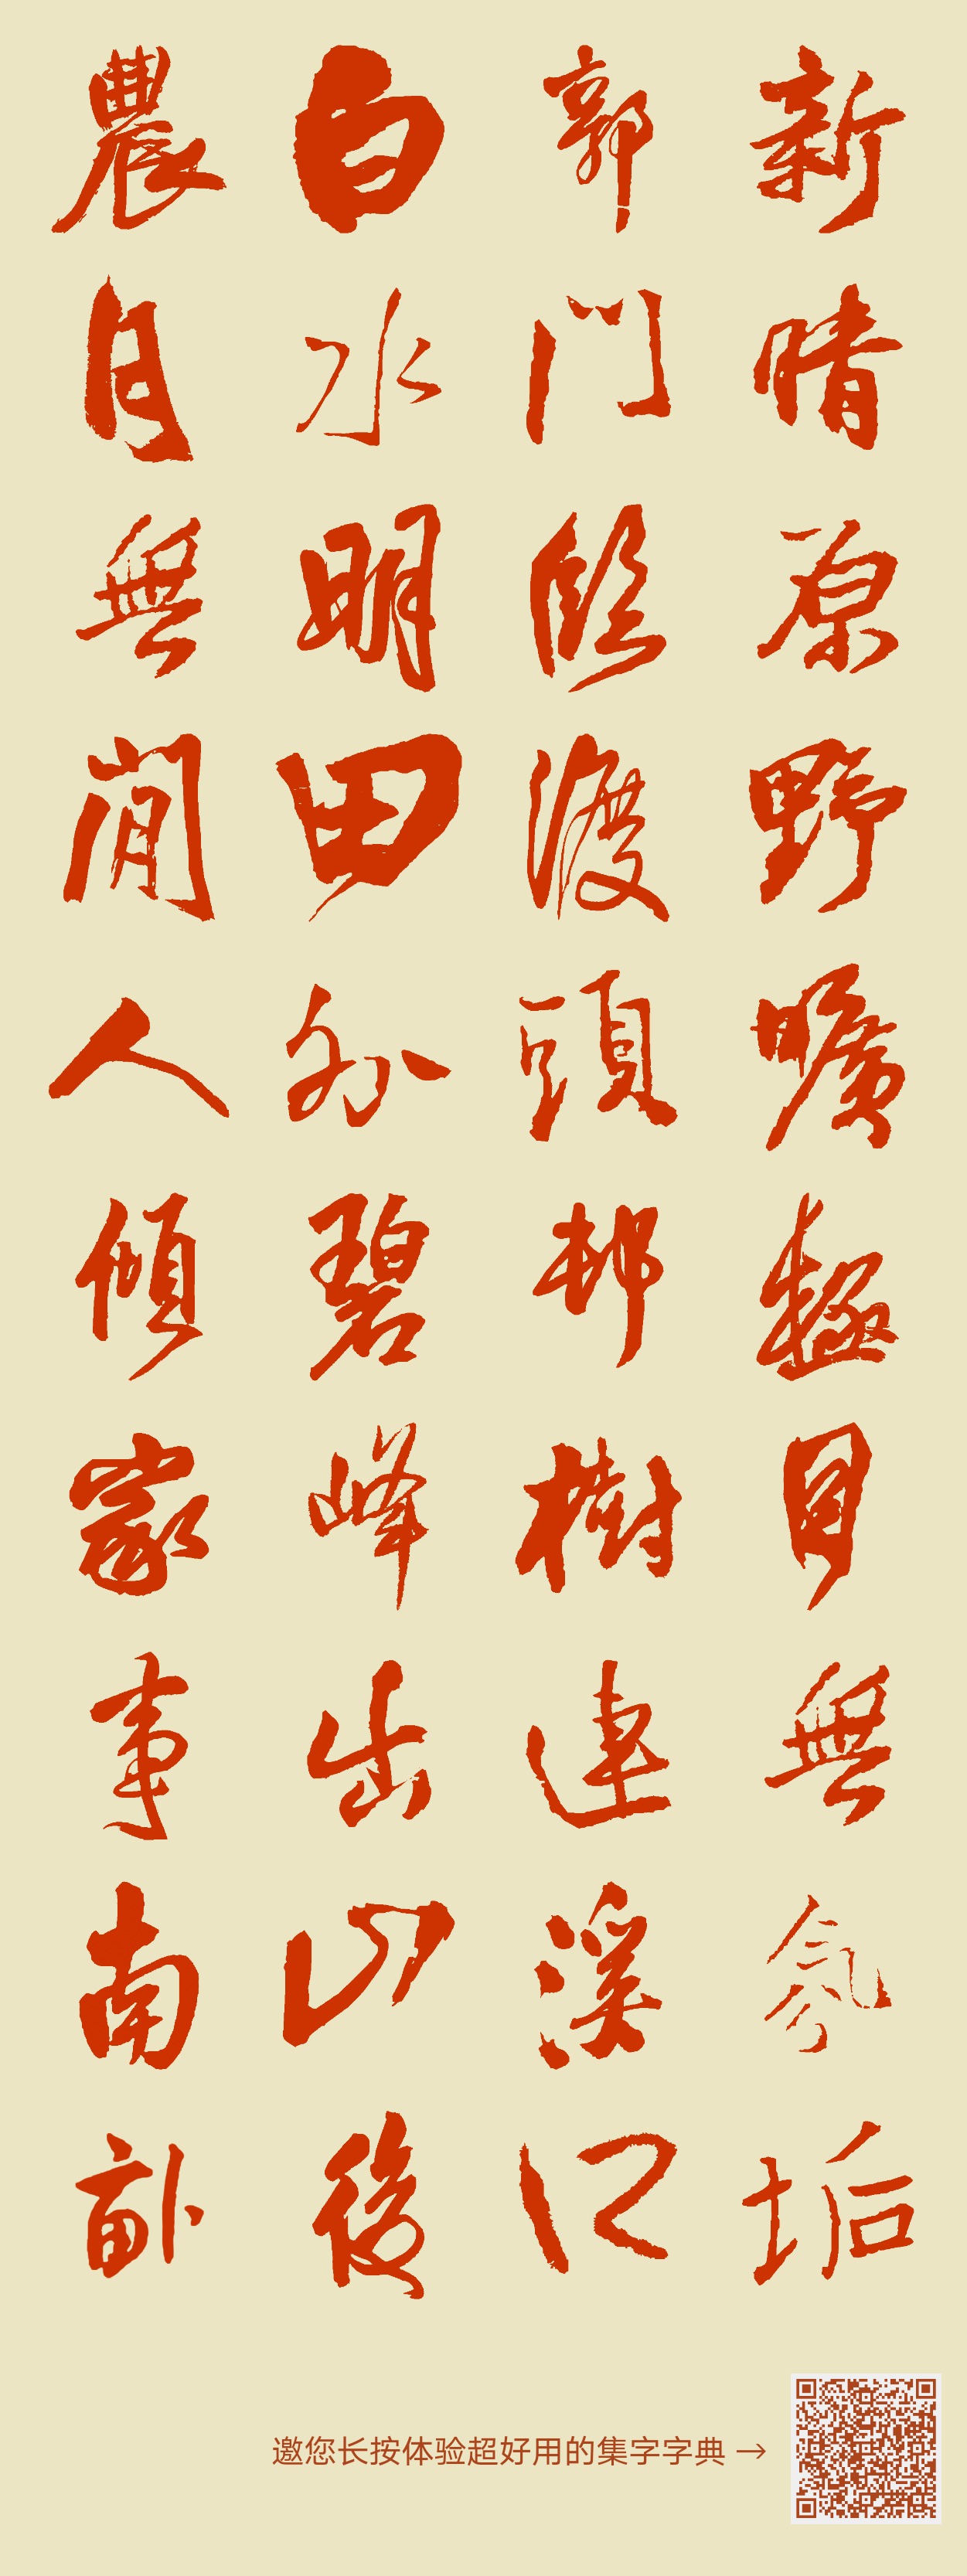 新晴原野曠極目無氛垢
郭門臨渡頭邨樹連溪口
白水明田外碧峰出山後
農月無閒人傾家事南畝
邀您长按体验超好用的集字字典 →